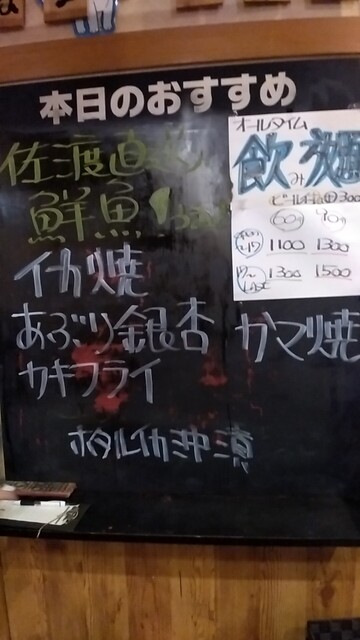 本日のおすすめ
佐渡直送
鮮魚!
イカ焼
あぶり銀杏
カマ焼
カキフライ
ホタルイカ沖漬
オールタイム
飲み放題
ビール付き
60分 90分
1100 1300
1300 1500